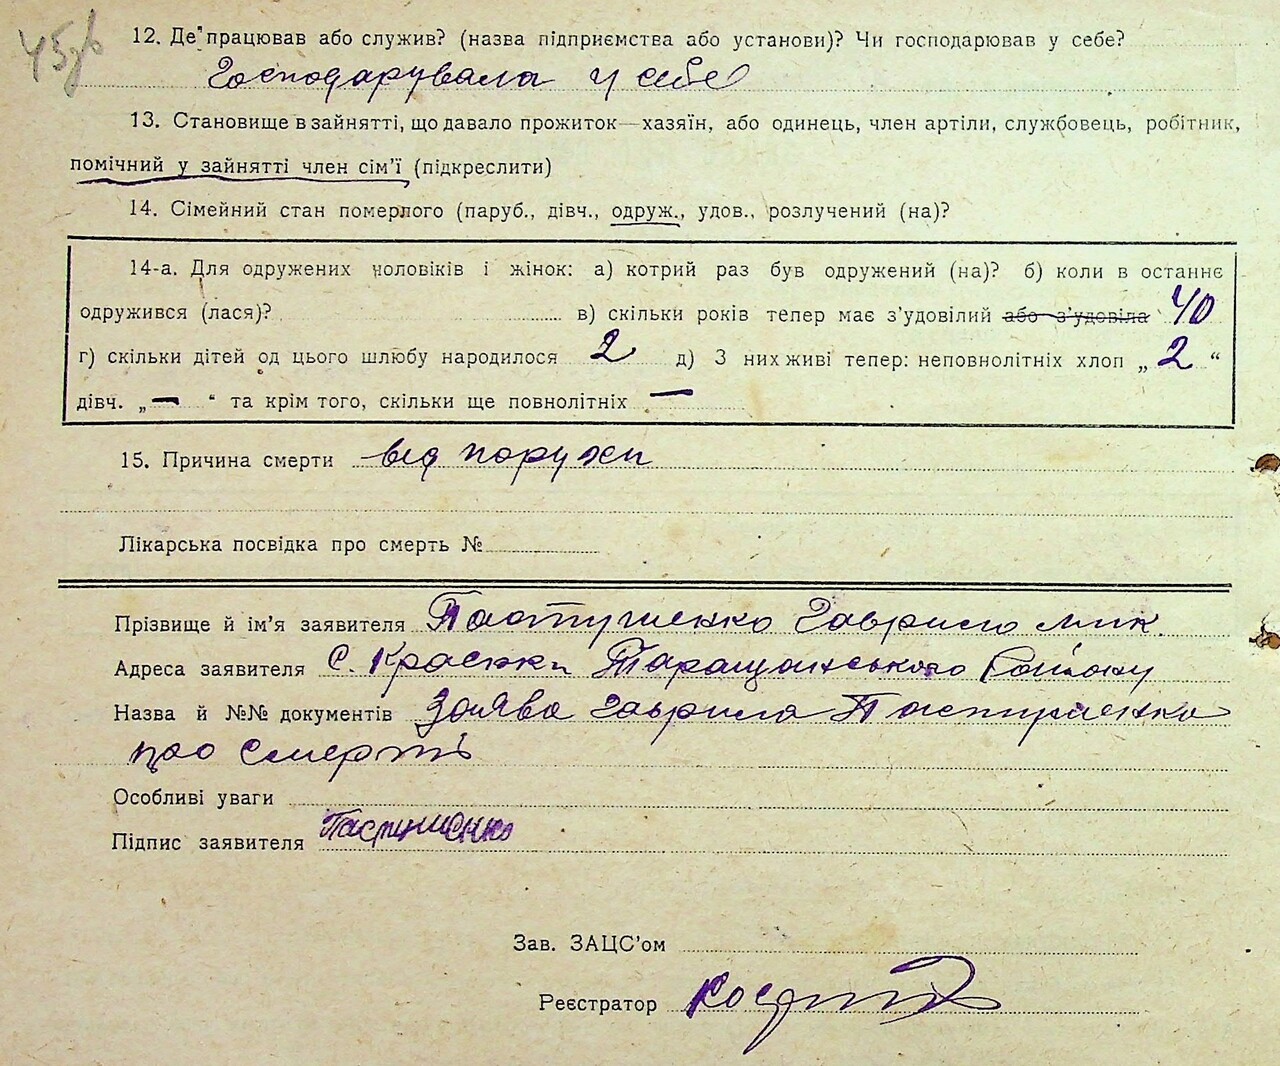 45зв
12. Де працював або служив? (назва підприємства або установи)? Чи господарював у себе?
Господарувала у себе
13. Становище в зайнятті, що давало прожиток—хазяїн, або одинець, член артіли, службовець, робітник,
помічний у зайнятті член сім'ї (підкреслити)
14. Сімейний стан померлого (паруб., дівч., одруж., удов., розлучений (на)?
14-а. Для одружених чоловіків і жінок: а) котрий раз був одружений (на)? б) коли в останнє
одружився (лася)? в) скільки років тепер має з'удовілий або з'удовіла 40
г) скільки дітей од цього шлюбу народилося 2 д) З них живі тепер: неповнолітніх хлоп „ 2 “
дівч. „ — “ та крім того, скільки ще повнолітніх —
15. Причина смерти від поружи
Лікарська посвідка про смерть №
Прізвище й ім'я заявителя Пастушенко Гаврило мик.
Адреса заявителя С. Крас Таращанського Району
Назва й №№ документів Заява Гаврила Пастушенка
про смерть
Особливі уваги
Підпис заявителя Пастушенко
Зав. ЗАЦС'ом
Реєстратор